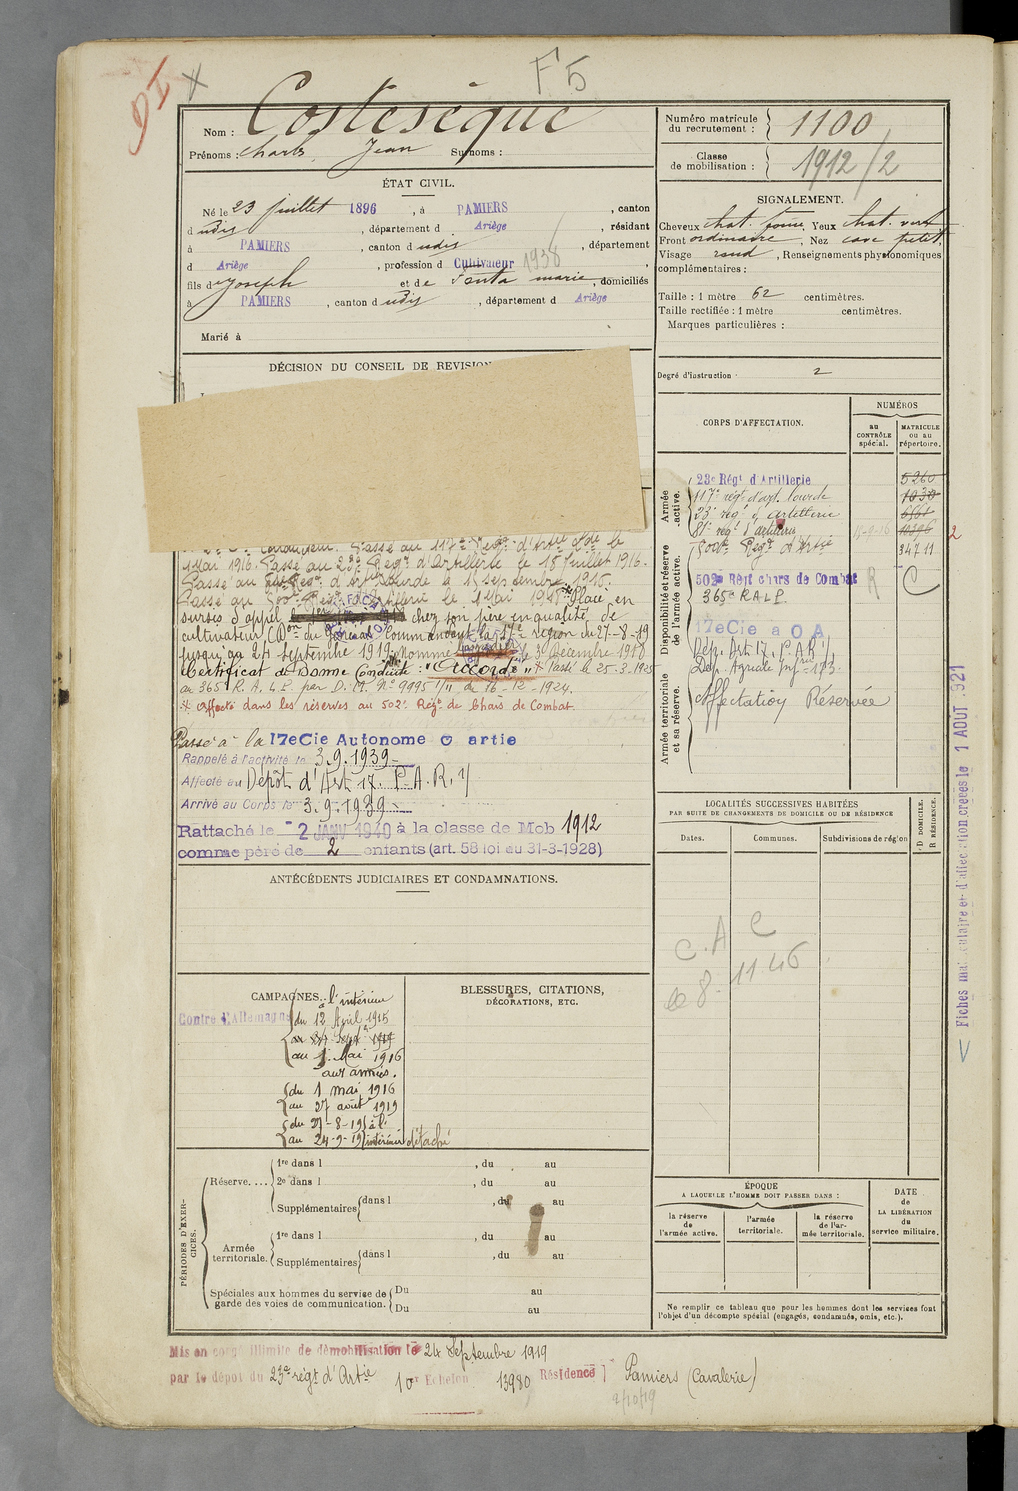 F5
Nom : Costesèque
Prénoms : Charles, Jean Surnoms :
Numéro matricule du recrutement : 1100
Classe de mobilisation : 1912/2
ÉTAT CIVIL.
Né le 23 juillet 1896, à PAMIERS, canton
d udis, département d Ariège, résidant
à PAMIERS, canton d udis, département
d Ariège, profession d Cultivateur 1938
fils de Joseph et de Fonta marie, domiciliés
à PAMIERS, canton d udis, département d Ariège
Marié à
SIGNALEMENT.
Cheveux chat. foncé, Yeux chat. vert
Front ordinaire, Nez cave petit,
Visage rond, Renseignements physionomiques
complémentaires :
Taille : 1 mètre 62 centimètres.
Taille rectifiée : 1 mètre centimètres.
Marques particulières :
Degré d'instruction : 2
DÉCISION DU CONSEIL DE REVISION
CORPS D'AFFECTATION.
NUMÉROS
au CONTRÔLE spécial.
MATRICULE ou au répertoire.
Armée active.
23e Régt d'Artillerie 5260
117e régt d'art. lourde 1030
23e régt d'artillerie
81e régt d'artillerie 10396
Disponibilité et réserve de l'armée active.
500e Régt d'Artie 34711
502e Régt chars de Combat R C
365e R.A.L.P.
17eCie a O A
Armée territoriale et sa réserve.
Dép. Art 17. P.A.R 1/
Affectation Réservée
conducteur. Passé au 117e Régt d'Artie Lde le
1 Mai 1916. Passé au 23e Régt d'Artillerie le 18 Juillet 1916.
Passé au Régt d'Artie Lourde le 1 septembre 1916.
Passé au 500e Régt d'Artillerie le 1 Mai 1918. Placé en
sursis d'appel chez son père en qualité de
cultivateur (Don du Général Commandant la 17e région du 27-8-19
jusqu'au 24 Septembre 1919. Nommé le 3 Décembre 1918
Certificat de Bonne Conduite : "Accordé" * Passé le 25-3-1925
au 365e R.A.L.P. par D.M. No 9995 1/11 du 16-12-1924.
* affecté dans les réserves au 502e Régt de Chars de Combat.
Passé à la 17eCie Autonome O artie
Rappelé à l'activité le 3.9.1939
Affecté au Dépôt d'Art 17. P.A.R. 1/
Arrivé au Corps le 3.9.1939
Rattaché le 2 JANV 1940 à la classe de Mob 1912
comme père de 2 enfants (art. 58 loi du 31-3-1928)
ANTÉCÉDENTS JUDICIAIRES ET CONDAMNATIONS.
LOCALITÉS SUCCESSIVES HABITÉES
PAR SUITE DE CHANGEMENTS DE DOMICILE OU DE RÉSIDENCE
Dates. Communes. Subdivisions de région
D DOMICILE.
R RÉSIDENCE.
C.A C
le 8.11.46
CAMPAGNES.
Contre l'Allemagne
à l'intérieur
du 12 April 1915
au 24 Sept 1919
au 1 Mai 1916
aux armées.
du 1 mai 1916
au 27 août 1919
du 27-8-19 à l'
au 24-9-19 intérieur détaché
BLESSURES, CITATIONS,
DÉCORATIONS, ETC.
PÉRIODES D'EXERCICES.
Réserve....
1re dans l , du au
2e dans l , du au
Supplémentaires dans l , du au
Armée territoriale.
1re dans l , du au
Supplémentaires dans l , du au
Spéciales aux hommes du service de garde des voies de communication.
Du au
Du au
ÉPOQUE
A LAQUELLE L'HOMME DOIT PASSER DANS :
la réserve de l'armée active.
l'armée territoriale.
la réserve de l'armée territoriale.
DATE de LA LIBÉRATION du service militaire.
Ne remplir ce tableau que pour les hommes dont les services font
l'objet d'un décompte spécial (engagés, condamnés, omis, etc.).
Fiches matriculaire et d'affection créées le 1 AOUT 1921
Mis en congé illimité de démobilisation le 24 Septembre 1919
par le dépôt du 23e régt d'Artie 1er Echelon 13980 Résidence Pamiers (Cavalerie)
2/10/19